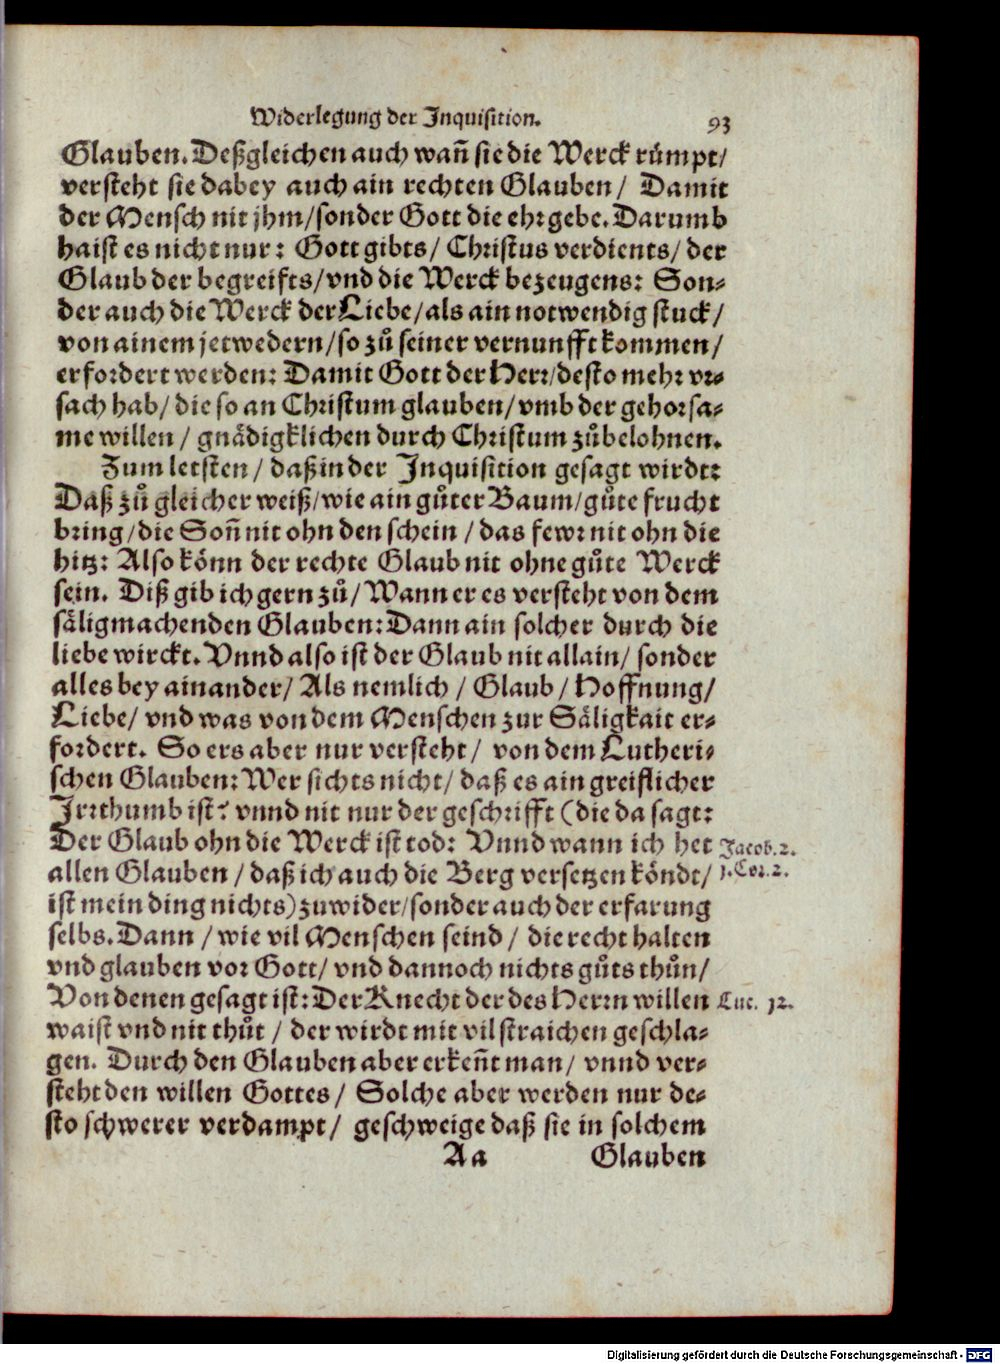 Widerlegung der Inquisition. 93
Glauben. Deßgleichen auch wañ sie die Werck rümpt/
versteht sie dabey auch ain rechten Glauben/ Damit
der Mensch nit jhm/sonder Gott die ehr gebe. Darumb
haist es nicht nur: Gott gibts/ Christus verdients/ der
Glaub der begreifts/vnd die Werck bezeugens: Son-
der auch die Werck der Liebe/als ain notwendig stuck/
von ainem jetwedern/so zů seiner vernunfft kommen/
erfordert werden: Damit Gott der Herr/desto mehr vr-
sach hab/ die so an Christum glauben/vmb der gehorsa-
me willen/ gnädigklichen durch Christum zůbelohnen.
Zum letsten/ daß in der Inquisition gesagt wirdt:
Daß zů gleicher weiß/wie ain gůter Baum/gůte frucht
bring/die Soñ nit ohn den schein/das fewr nit ohn die
hitz: Also könn der rechte Glaub nit ohne gůte Werck
sein. Diß gib ich gern zů/ Wann er es versteht von dem
säligmachenden Glauben: Dann ain solcher durch die
liebe wirckt. Vnnd also ist der Glaub nit allain/ sonder
alles bey ainander/ Als nemlich/ Glaub/ Hoffnung/
Liebe/ vnd was von dem Menschen zur Säligkait er-
fordert. So ers aber nur versteht/ von dem Lutheri-
schen Glauben: Wer sichts nicht/ daß es ain greiflicher
Irrthumb ist? vnnd nit nur der geschrifft (die da sagt:
Der Glaub ohn die Werck ist tod: Vnnd wann ich het
Jacob. 2.
allen Glauben/ daß ich auch die Berg versetzen köndt/
1. Cor. 2.
ist mein ding nichts) zuwider/sonder auch der erfarung
selbs. Dann/ wie vil Menschen seind/ die recht halten
vnd glauben vor Gott/ vnd dannoch nichts gůts thůn/
Von denen gesagt ist: Der Knecht der des Herrn willen
Luc. 12.
waist vnd nit thůt/ der wirdt mit vil straichen geschla-
gen. Durch den Glauben aber erkeñt man/ vnnd ver-
steht den willen Gottes/ Solche aber werden nur de-
sto schwerer verdampt/ geschweige daß sie in solchem
Aa Glauben
Digitalisierung gefördert durch die Deutsche Forschungsgemeinschaft - DFG